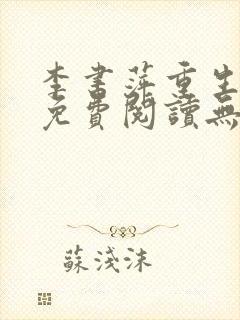 李書萍重生
免費閱讀無
蘇淺沫